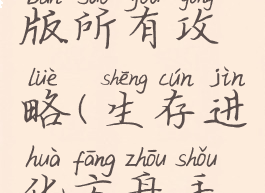 bǎn suǒ yǒu gōng
版所有攻
lüè shēng cún jìn
略(生存进
huà fāng zhōu shǒu
化方舟手